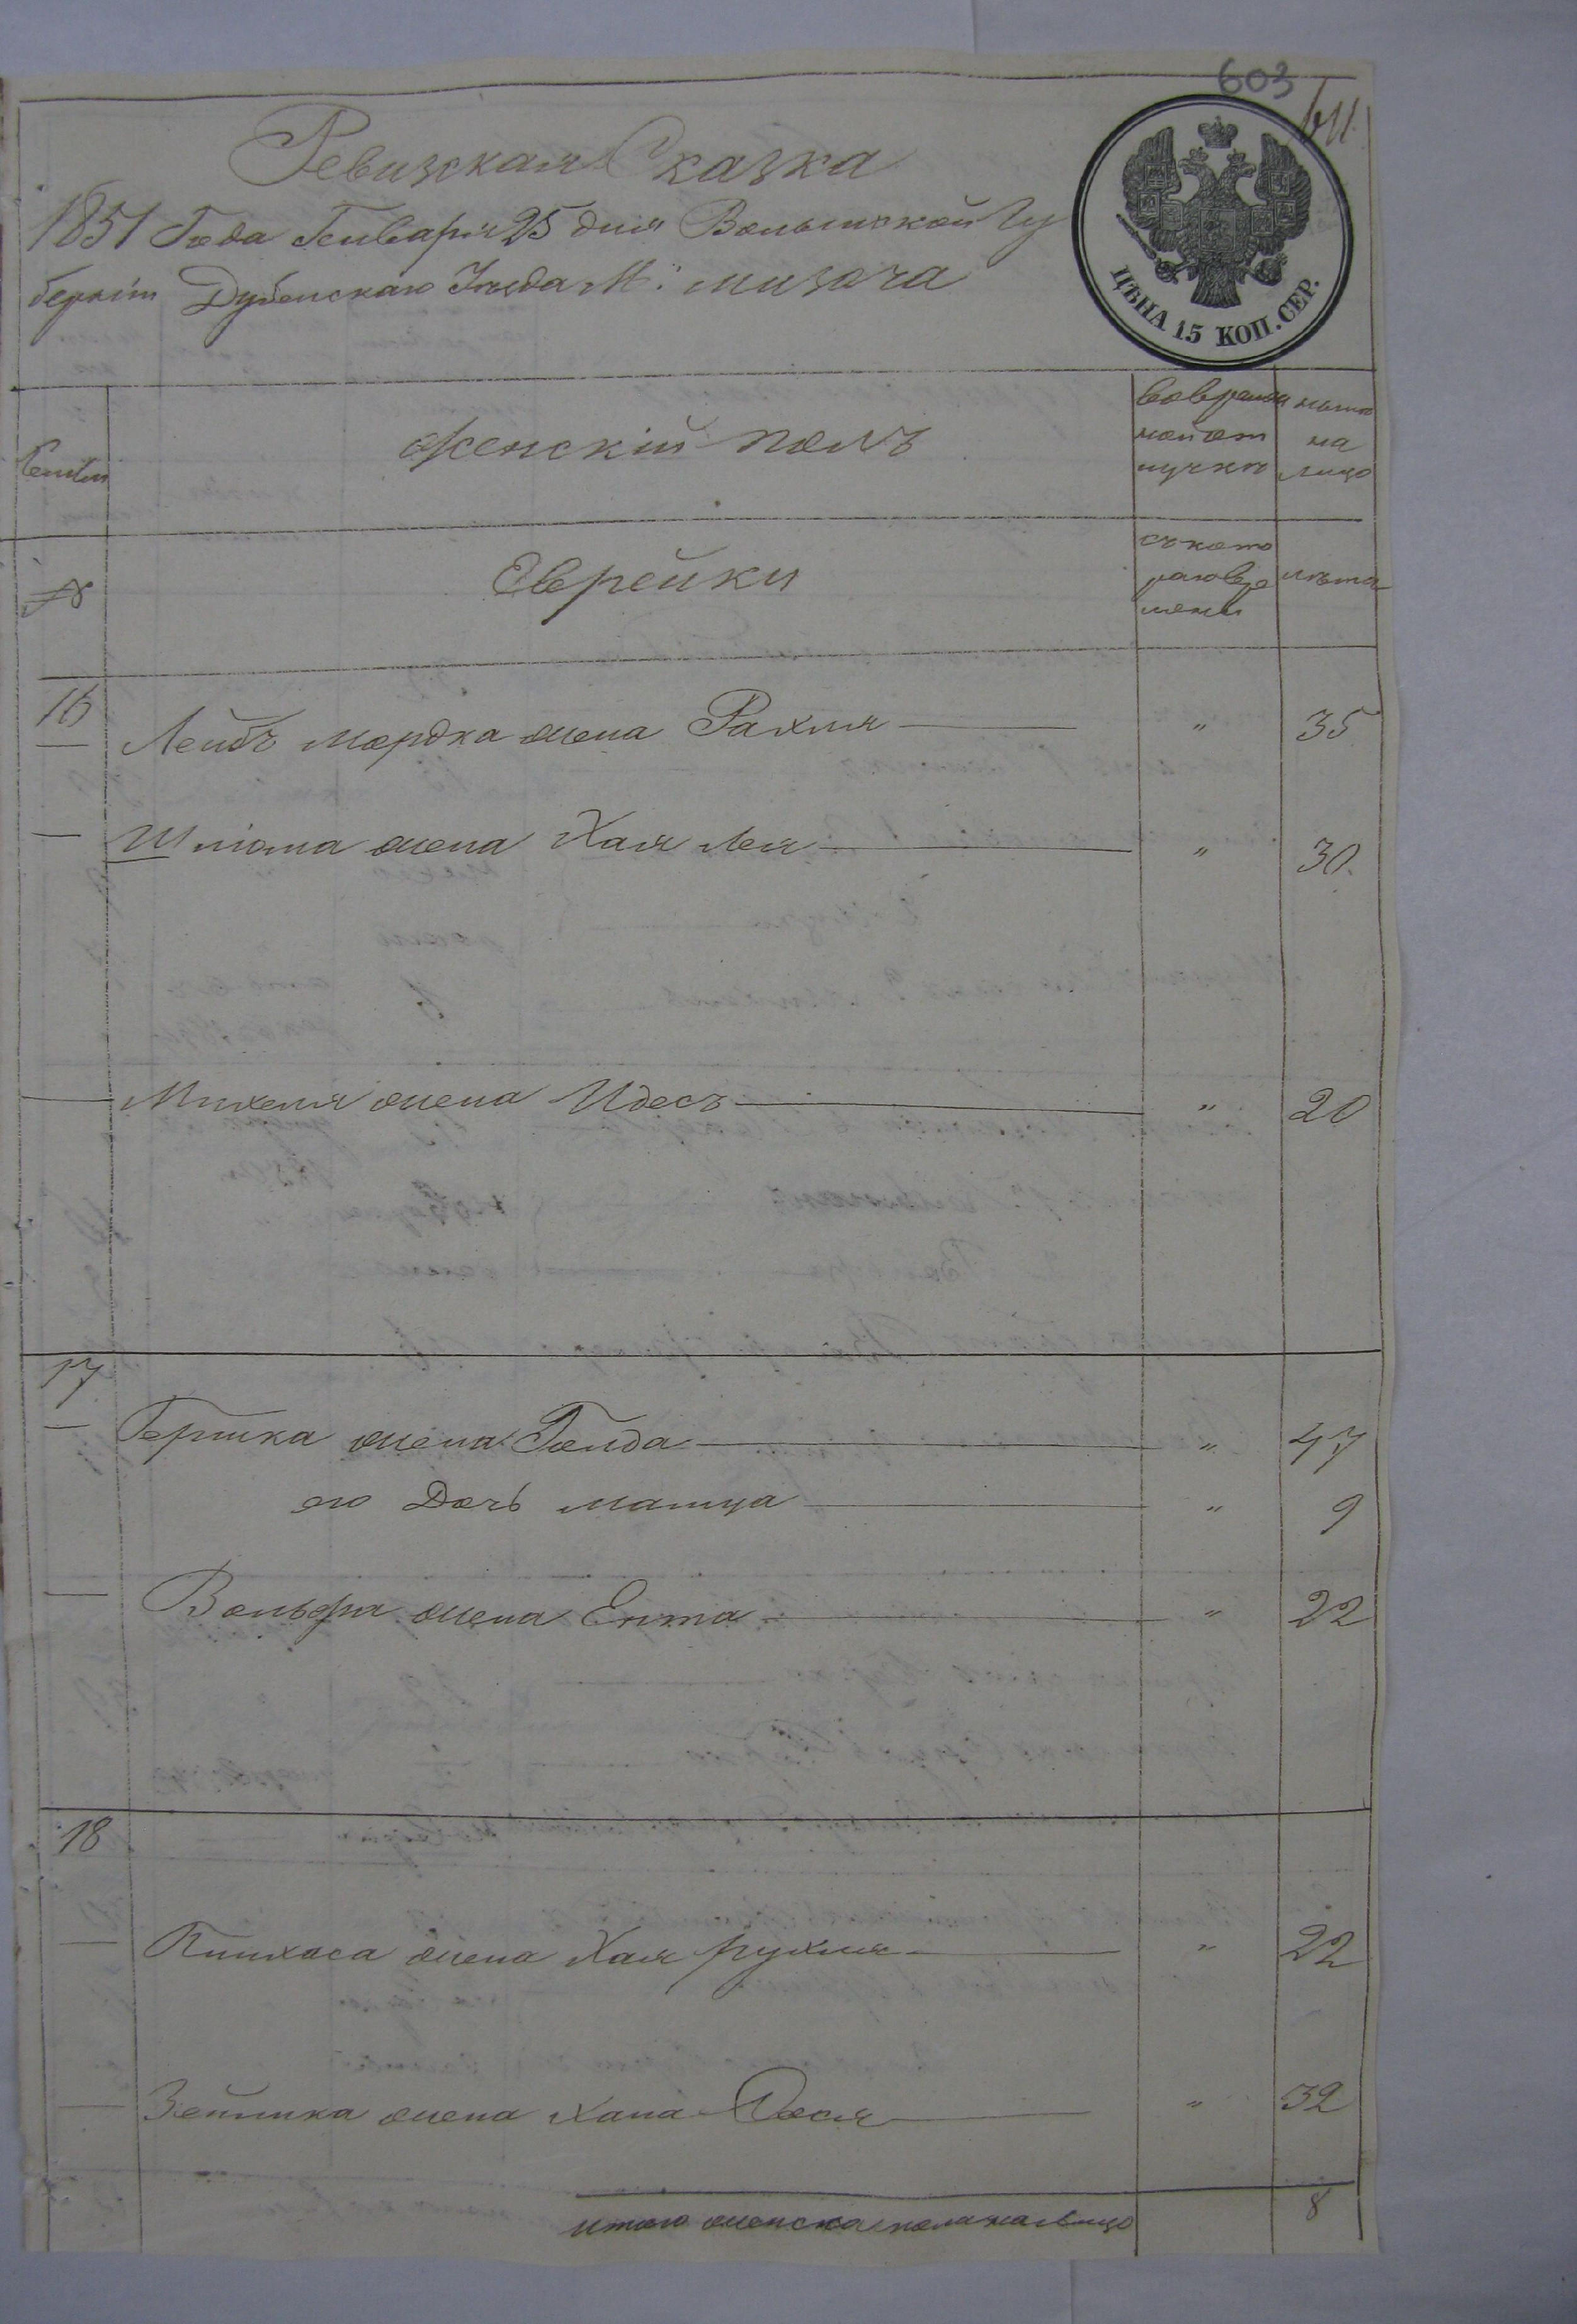 603
611
Ревизская Сказка
1851 Года Генваря 25 дня Волынской Гу
берніи Дубенскаго Уезда М: мизоча
ЦѢНА 15 КОП. СЕР.
Семьи
женскій полъ
вовремен
ной от
лучке
ныне
на
лицо
№
Еврейки
съ кото
раго вре
мени
лета
16
Лейбъ мордка жена Рахля " 35
Шліома жена Хая Лея " 30.
Михеля жена Идесъ " 20
17
Гершка жена Голда " 47
его Дочь матця " 9
Вольфа жена Ента " 22
18
Пинхаса жена Хая рухля " 22
Зейлика жена Хана Дося " 32
итого женска пола налицо 8